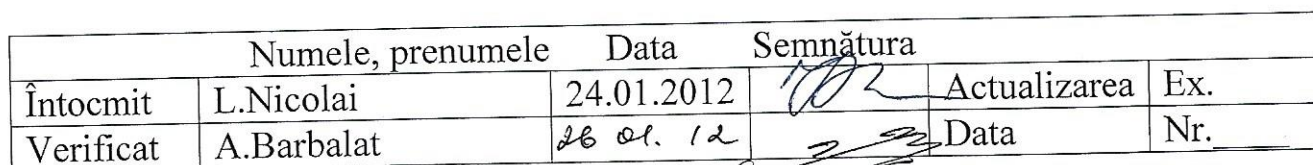 Numele, prenumele Data Semnătura
Întocmit L.Nicolai 24.01.2012 Actualizarea Ex.
Verificat A.Barbalat 26 01. 12 Data Nr.____